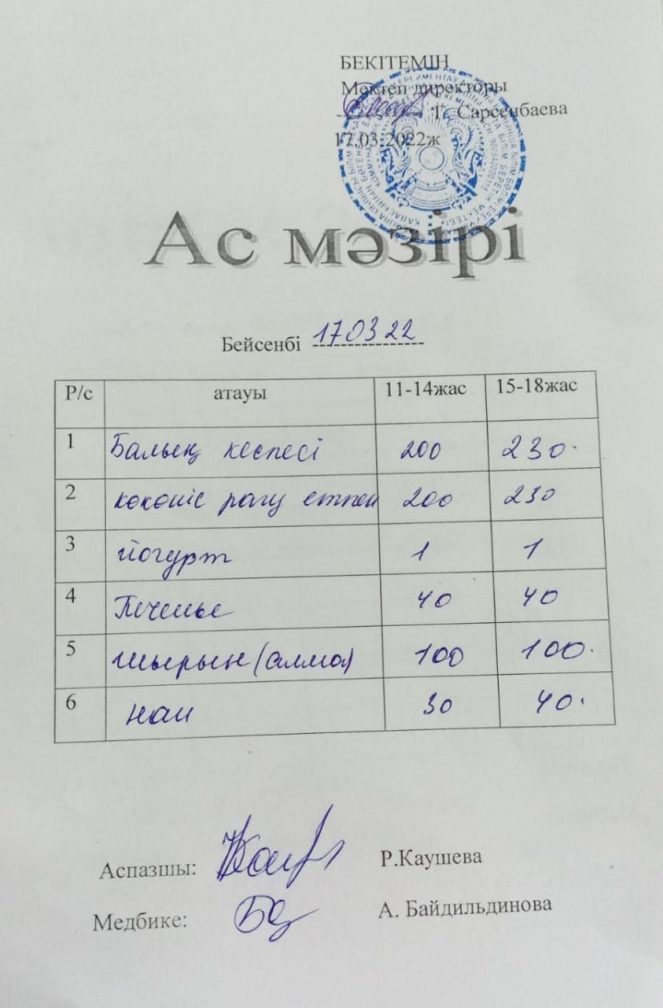 БЕКІТЕМІН
Мектеп директоры
Г. Сарсенбаева
17.03.2022ж
Ас мәзірі
Бейсенбі 170322
Р/с атауы 11-14жас 15-18жас
1 Балық кеспесі 200 230.
2 көкөніс рагу етпен 200 230
3 йогурт 1 1
4 Печенье 40 40
5 шырын (алма) 100 100.
6 нан 30 40.
Аспазшы: Р.Каушева
Медбике: А. Байдильдинова